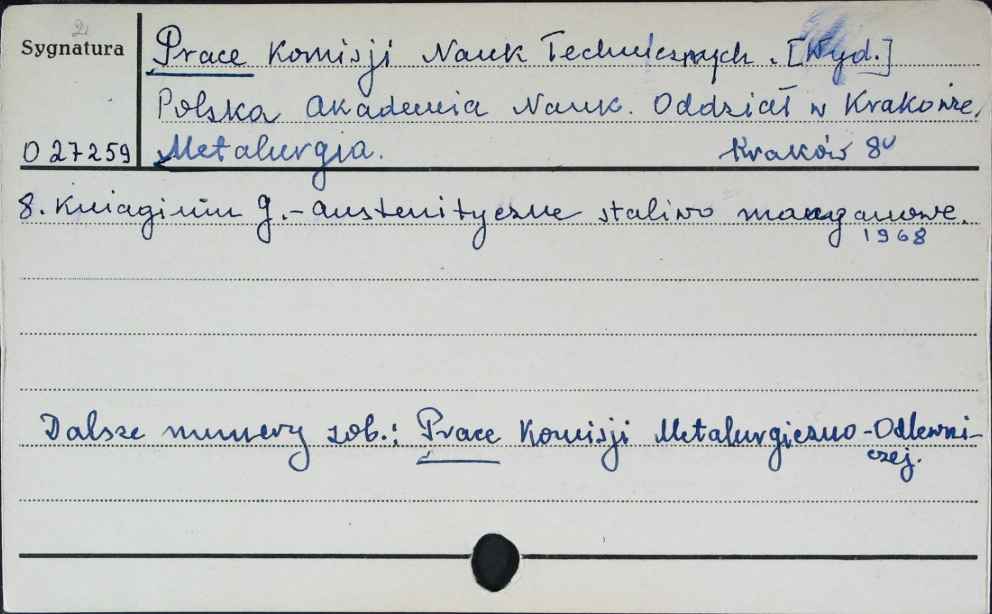 2
Sygnatura
Prace Komisji Nauk Technicznych. [Wyd.]
Polska Akademia Nauk. Oddział w Krakowie,
O 27259
Metalurgia. Kraków 8º
8. Kniaginin G. - Austenityczne staliwo manganowe.
1968
Dalsze numery zob.: Prace Komisji Metalurgiczno-Odlewni-
czej.